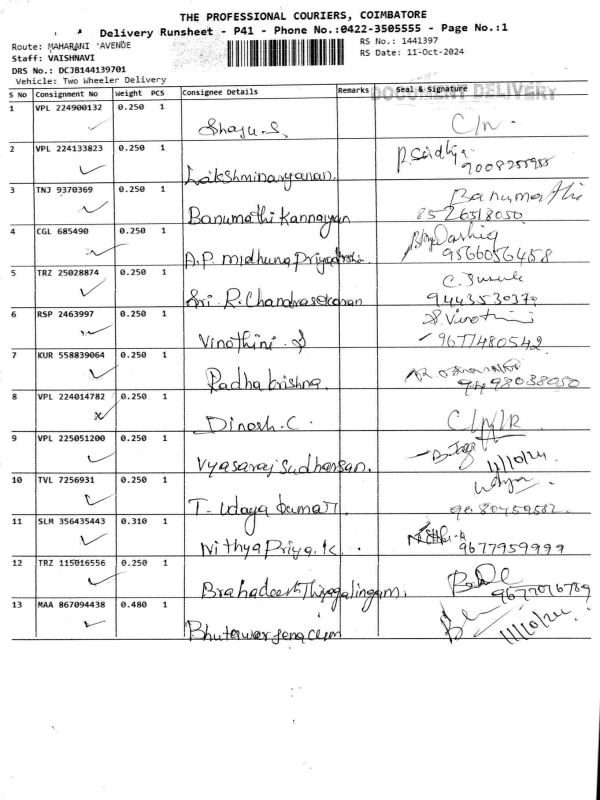 THE PROFESSIONAL COURIERS, COIMBATORE
Delivery Runsheet - P41 - Phone No.:0422-3505555 - Page No.:1
Route: MAHARANI 'AVENUE
RS No.: 1441397
Staff: VAISHNAVI
RS Date: 11-Oct-2024
DRS No.: DCJB144139701
Vehicle: Two Wheeler Delivery
DOCUMENT DELIVERY
S No Consignment No Weight PCS Consignee Details Remarks Seal & Signature
1 VPL 224900132 0.250 1 Shaju.S. C/n.
2 VPL 224133823 0.250 1 Lakshminaryanan.
9008255955
3 TNJ 9370369 0.250 1 Banumathi Kannayan Banumathi
8526518050
4 CGL 685490 0.250 1 A.P. midhuna Priyadharshin
9566056458
5 TRZ 25028874 0.250 1 Sri. R. Chandrasekaran
9443530379
6 RSP 2463997 0.250 1 Vinothini. S S. Vinothini
9677480542
7 KUR 558839064 0.250 1 Radha krishna.
9498038050
8 VPL 224014782 0.250 1 Dinesh. C.
9 VPL 225051200 0.250 1 Vyasaraj Sudharsan.
11/10/24
10 TVL 7256931 0.250 1 T. Udaya kumar Udaya
11 SLM 356435443 0.310 1 Nithya Priya. K.
9677959999
12 TRZ 115016556 0.250 1 Brahadeesh Thiyagalingam.
9677076789
13 MAA 867094438 0.480 1
11/10/24